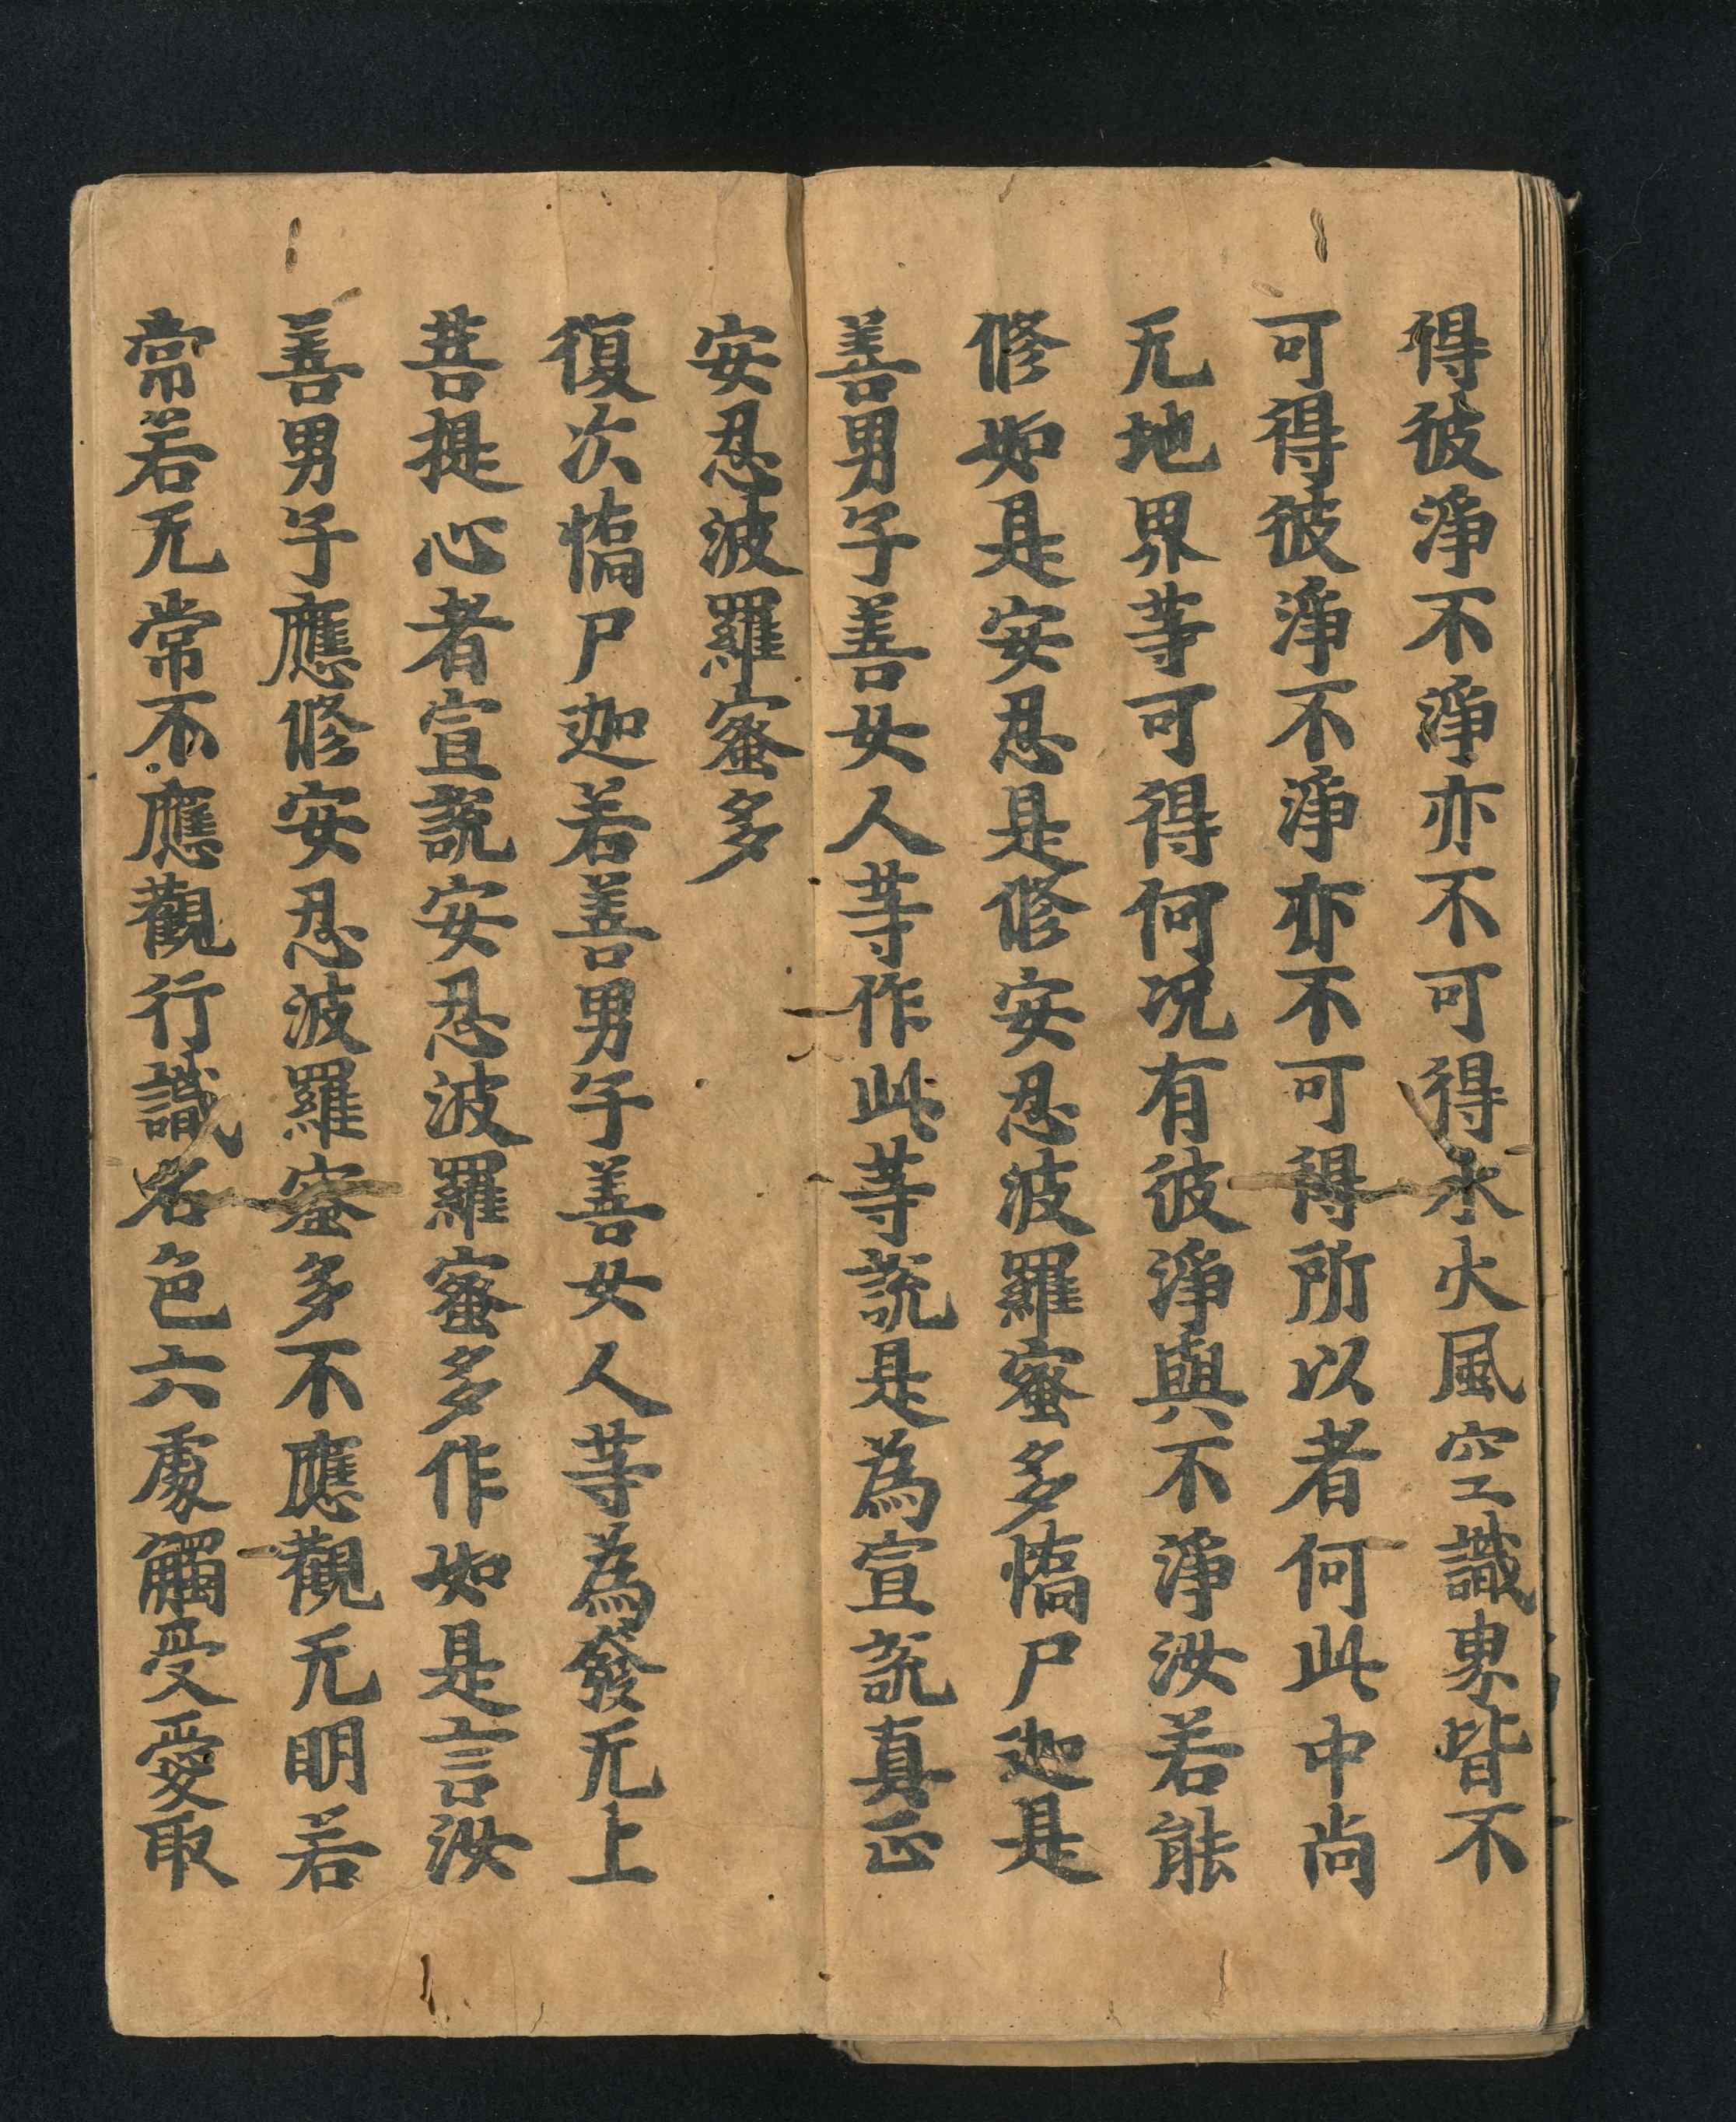 得彼淨不淨亦不可得水火風空識界皆不
可得彼淨不淨亦不可得所以者何此中尚
无地界等可得何況有彼淨與不淨汝若能
修如是安忍是修安忍波羅蜜多憍尸迦是
善男子善女人等作此等說是為宣說真正
安忍波羅蜜多
復次憍尸迦若善男子善女人等為發无上
菩提心者宣說安忍波羅蜜多作如是言汝
善男子應修安忍波羅蜜多不應觀无明若
常若无常不應觀行識名色六處觸受愛取